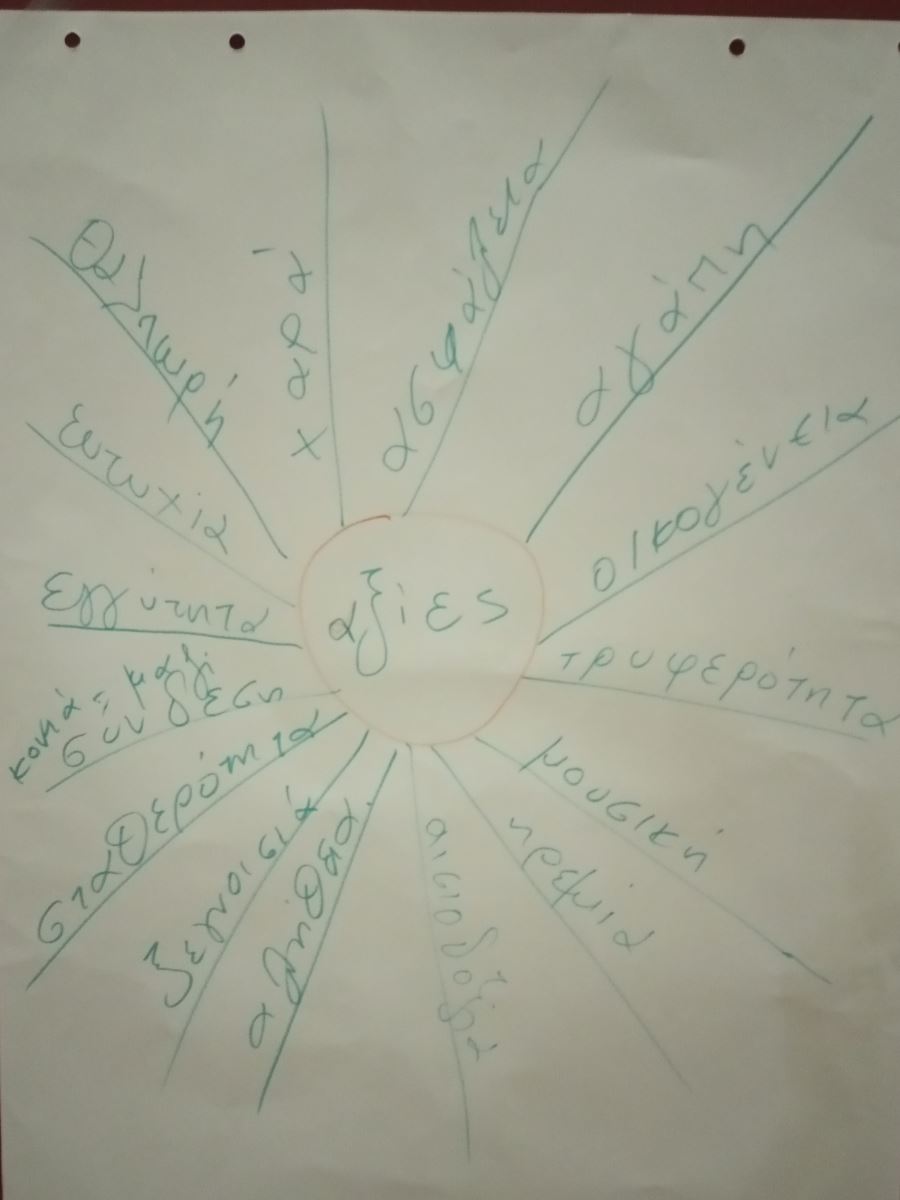 αξίες
θαλπωρή
χαρά
ασφάλεια
αγάπη
οικογένεια
τρυφερότητα
μουσική
ηρεμία
αισιοδοξία
αλήθεια
ξεγνοισιά
σταθερότητα
κοντά = μαζί
σύνδεση
εγγύτητα
ευτυχία